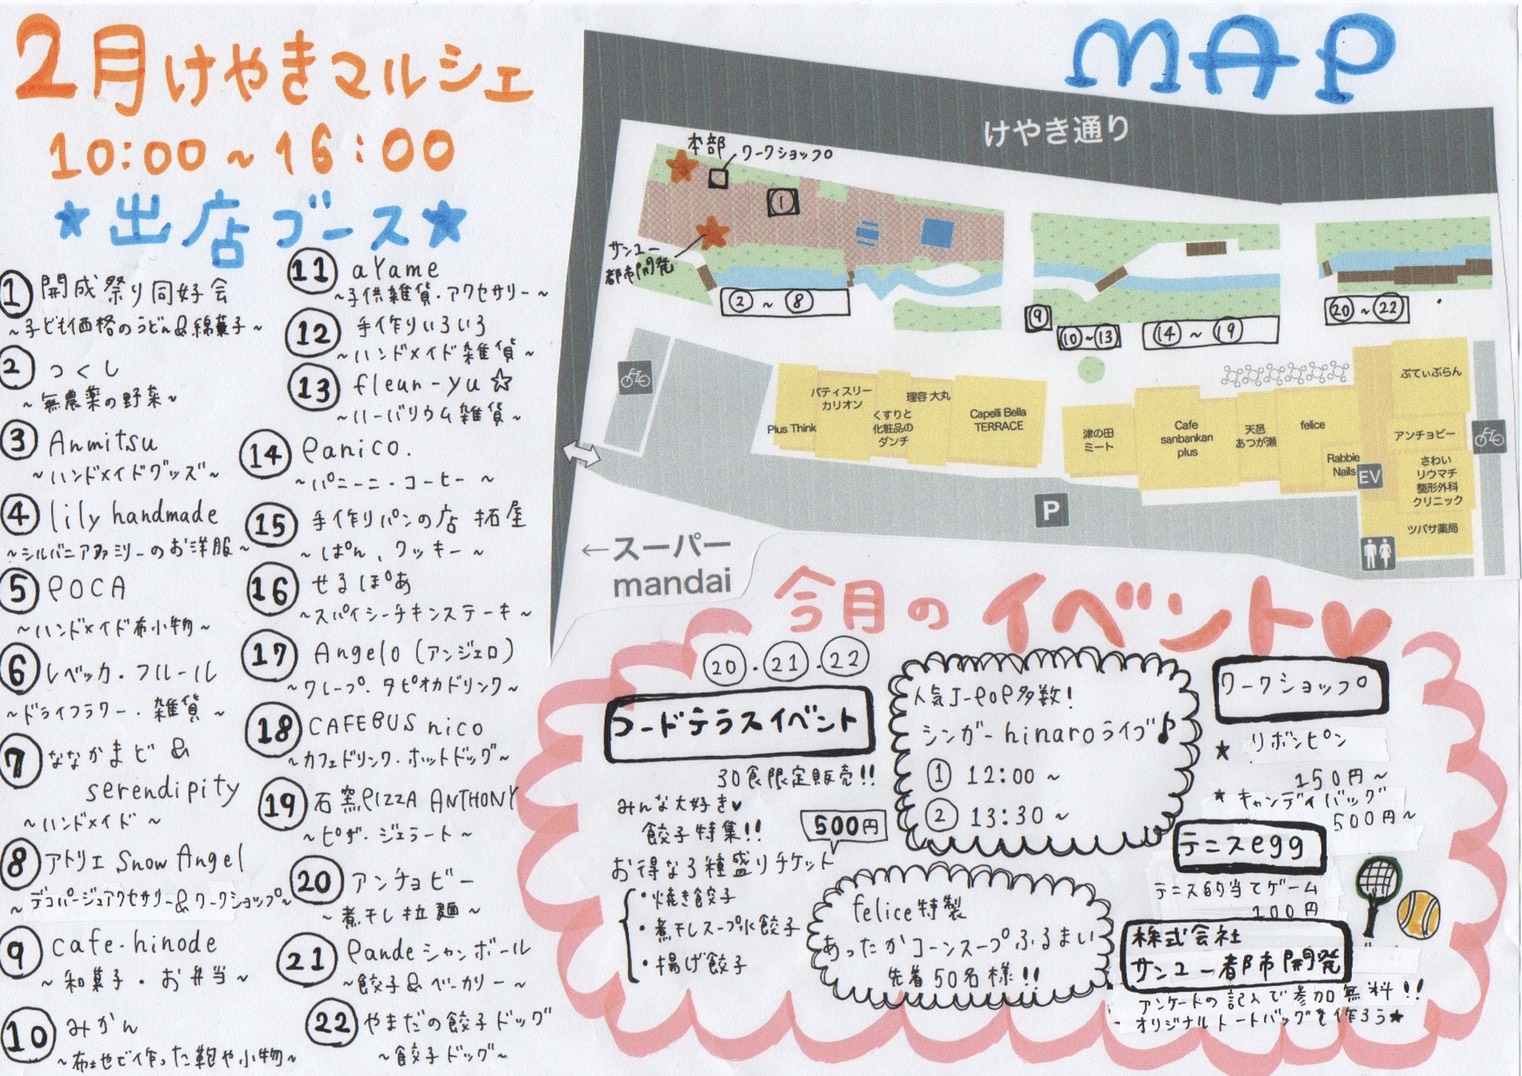 2月けやきマルシェ
10:00~16:00
★出店ブース★
① 開成祭り同好会
~子ども価格のうどん&綿菓子~
② つくし
~無農薬の野菜~
③ Anmitsu
~ハンドメイドグッズ~
④ lily handmade
~シルバニアファミリーのお洋服~
⑤ POCA
~ハンドメイド布小物~
⑥ レベッカ・フルール
~ドライフラワー・雑貨~
⑦ ななかまど &
serendipity
~ハンドメイド~
⑧ アトリエ Snow Angel
~デコパージュアクセサリー&ワークショップ~
⑨ cafe・hinode
~和菓子・お弁当~
⑩ みかん
~布で作った鞄や小物~
⑪ aYame
~子供雑貨・アクセサリー~
⑫ 手作りいろいろ
~ハンドメイド雑貨~
⑬ fleur-yu☆
~ハーバリウム雑貨~
⑭ Panico.
~パニーニ・コーヒー~
⑮ 手作りパンの店 拓屋
~ぱん、クッキー~
⑯ せるぽあ
~スパイシーチキンステーキ~
⑰ Angelo (アンジェロ)
~クレープ、タピオカドリンク~
⑱ CAFEBUS nico
~カフェドリンク・ホットドッグ~
⑲ 石窯PIZZA ANTHONY
~ピザ・ジェラート~
⑳ アンチョビー
~煮干し拉麺~
㉑ Pande シャンボール
~餃子&ベーカリー~
㉒ やまだの餃子ドッグ
~餃子ドッグ~
MAP
けやき通り
本部
ワークショップ
①
サンユー
都市開発
②~⑧
⑨
⑩~⑬
⑭~⑲
⑳~㉒
Plus Think
パティスリー
カリオン
くすりと
化粧品の
ダンチ
理容 大丸
Capelli Bella
TERRACE
津の田
ミート
Cafe
sanbankan
plus
天邑
あつが瀬
felice
Rabbie
Nails
EV
ぷてぃぷらん
アンチョビー
さわい
リウマチ
整形外科
クリニック
ツバサ薬局
P
←スーパー
mandai
今月のイベント♥
⑳・㉑・㉒
フードテラスイベント
30食限定販売!!
みんな大好き♥
餃子特集!!
500円
お得な3種盛りチケット
・焼き餃子
・煮干しスープ水餃子
・揚げ餃子
人気J-POP多数!
シンガーhinaroライブ♪
① 12:00~
② 13:30~
felice特製
あったかコーンスープふるまい
先着50名様!!
ワークショップ
★ リボンピン
150円~
★ キャンディバッグ
500円~
テニスegg
テニス的当てゲーム
100円
株式会社
サンユー都市開発
アンケートの記入で参加無料!!
オリジナルトートバッグを作ろう★